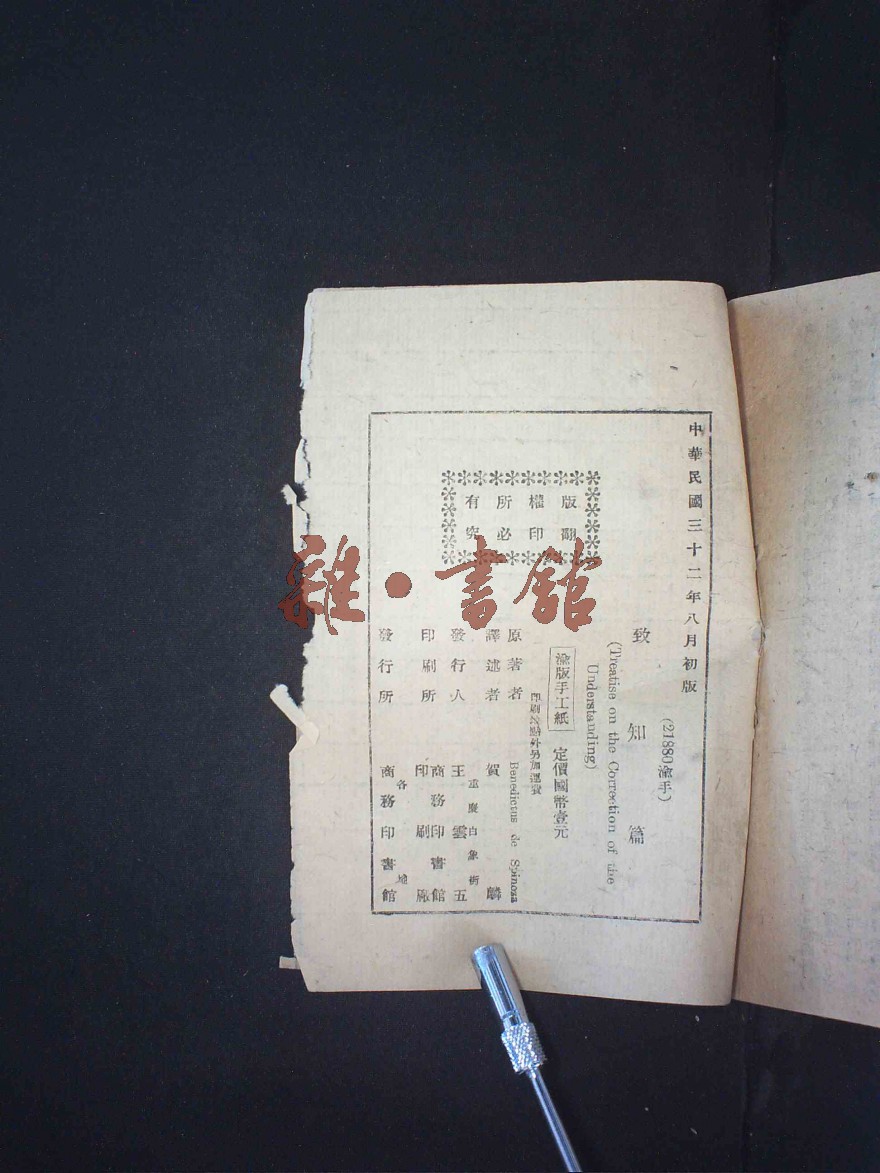 中華民國三十二年八月初版
(21880渝手)
致知篇
(Treatise on the Correction of the
Understanding)
渝版手工紙 定價國幣壹元
印刷地點外另加運費
原著者 Benedictus de Spinoza
譯述者 賀麟
重慶白象街
發行人 王雲五
印刷所 商務印書館
印刷廠
各地
發行所 商務印書館
版權所有
翻印必究
雜·書館